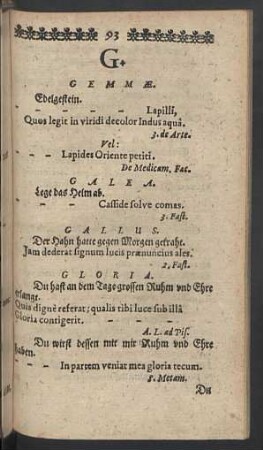 93
G.
GEMMÆ.
Edelgestein.
- - - - Lapilli,
Quos legit in viridi decolor Indus aquâ.
3. de Arte.
Vel:
- - Lapides Oriente petiti.
De Medicam. Fac.
GALEA.
Lege das Helm ab.
- - Casside solve comas.
3. Fast.
GALLUS.
Der Hahn hatte gegen Morgen gekraht.
Jam dederat signum lucis prænuncius ales.
2. Fast.
GLORIA.
Du hast an dem Tage grossen Ruhm vnd Ehre
erlanget.
Quis dignè referat; qualis tibi luce sub illâ
Gloria contigerit. - - -
A. L. ad Pis.
Du wirst dessen mit mir Ruhm vnd Ehre
haben.
- - In partem veniat mea gloria tecum.
8. Metam.
Du